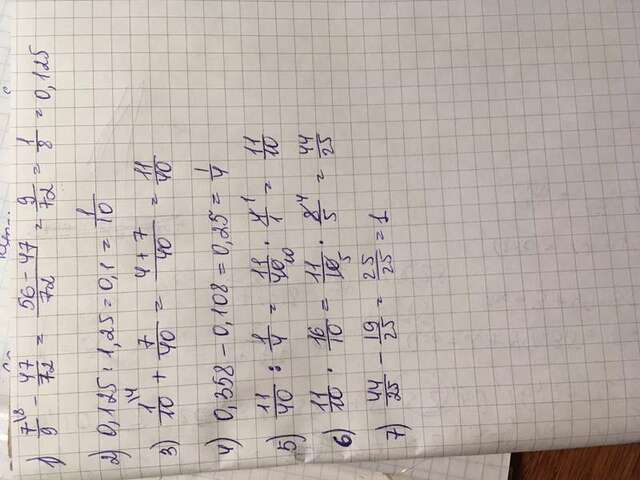 1) 7/9 \8 - 47/72 = 56-47/72 = 9/72 = 1/8 = 0,125
2) 0,125 : 1,25 = 0,1 = 1/10
3) 1/10 \4 + 7/40 = 4+7/40 = 11/40
4) 0,358 - 0,108 = 0,25 = 1/4
5) 11/40 : 1/4 = 11/40 10 · 4/1 1 = 11/10
6) 11/10 · 16/10 = 11/10 5 · 8/5 4 = 44/25
7) 44/25 - 19/25 = 25/25 = 1